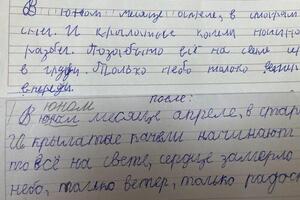 В юном месяце апреле, в старом
И крылатые качели
всё на свете
в груди. Только небо только ветер
впереди.
после:
юном
В юном месяце апреле, в стар
И крылатые качели начинают
то всё на свете, сердце замерло
небо, только ветер, только радос